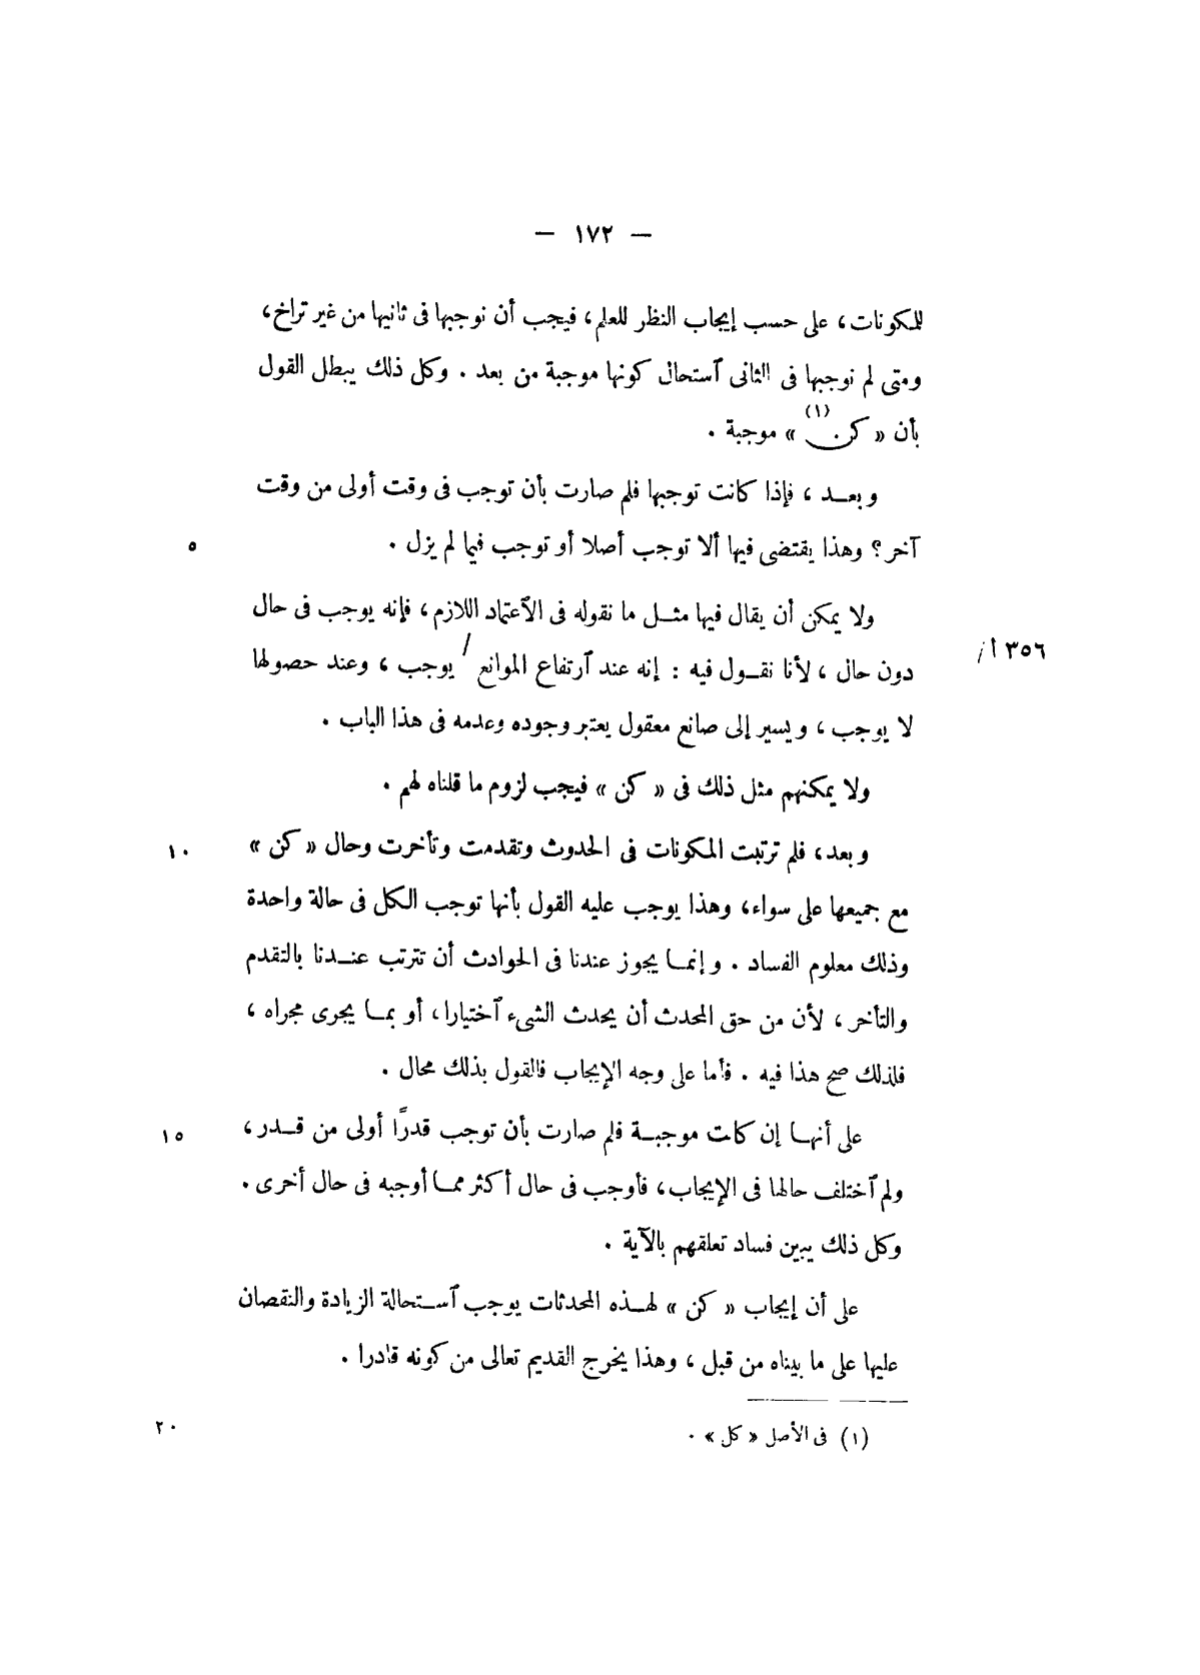 — ١٧٢ —
للمكونات، على حسب إيجاب النظر للعلم، فيجب أن نوجبها فى ثانيها من غير تراخ،
ومتى لم نوجبها فى الثانى ٱستحال كونها موجبة من بعد . وكل ذلك يبطل القول
بأن « كن (١) » موجبة .
وبعـد ، فإذا كانت توجبها فلم صارت بأن توجب فى وقت أولى من وقت
آخر؟ وهذا يقتضى فيها ألا توجب أصلا أو توجب فيما لم يزل . ٥
ولا يمكن أن يقال فيها مثـل ما نقوله فى الٱعتماد اللازم، فإنه يوجب فى حال
دون حال ، لأنا نقـول فيه : إنه عند ٱرتفاع الموانع / يوجب ، وعند حصولها ٣٥٦ أ/
لا يوجب ، ويسير إلى صانع معقول يعتبر وجوده وعدمه فى هذا الباب .
ولا يمكنهم مثل ذلك فى « كن » فيجب لزوم ما قلناه لهم .
وبعد، فلم ترتبت المكونات فى الحدوث وتقدمت وتأخرت وحال « كن » ١٠
مع جميعها على سواء، وهذا يوجب عليه القول بأنها توجب الكل فى حالة واحدة
وذلك معلوم الفساد . وإنمـا يجوز عندنا فى الحوادث أن تترتب عنـدنا بالتقدم
والتأخر ، لأن من حق المحدث أن يحدث الشىء ٱختيارا، أو بمـا يجرى مجراه ،
فلذلك صح هذا فيه . فأما على وجه الإيجاب فالقول بذلك محال .
على أنهـا إن كانت موجبـة فلم صارت بأن توجب قدرًا أولى من قـدر ، ١٥
ولم ٱختلف حالها فى الإيجاب، فأوجب فى حال أكثر ممـا أوجبه فى حال أخرى .
وكل ذلك يبين فساد تعلقهم بالآية .
على أن إيجاب « كن » لهـذه المحدثات يوجب ٱسـتحالة الزيادة والنقصان
عليها على ما بيناه من قبل ، وهذا يخرج القديم تعالى من كونه قادرا .
(١) فى الأصل « كل » . ٢٠